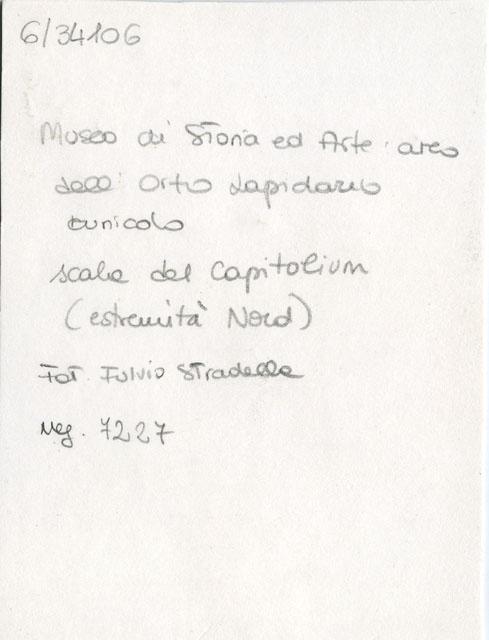 6/34106
Museo di Storia ed Arte: area
dell' Orto Lapidario
cunicolo
scale del Capitolium
(estremità Nord)
Fot. Fulvio Stradella
Neg. 7227